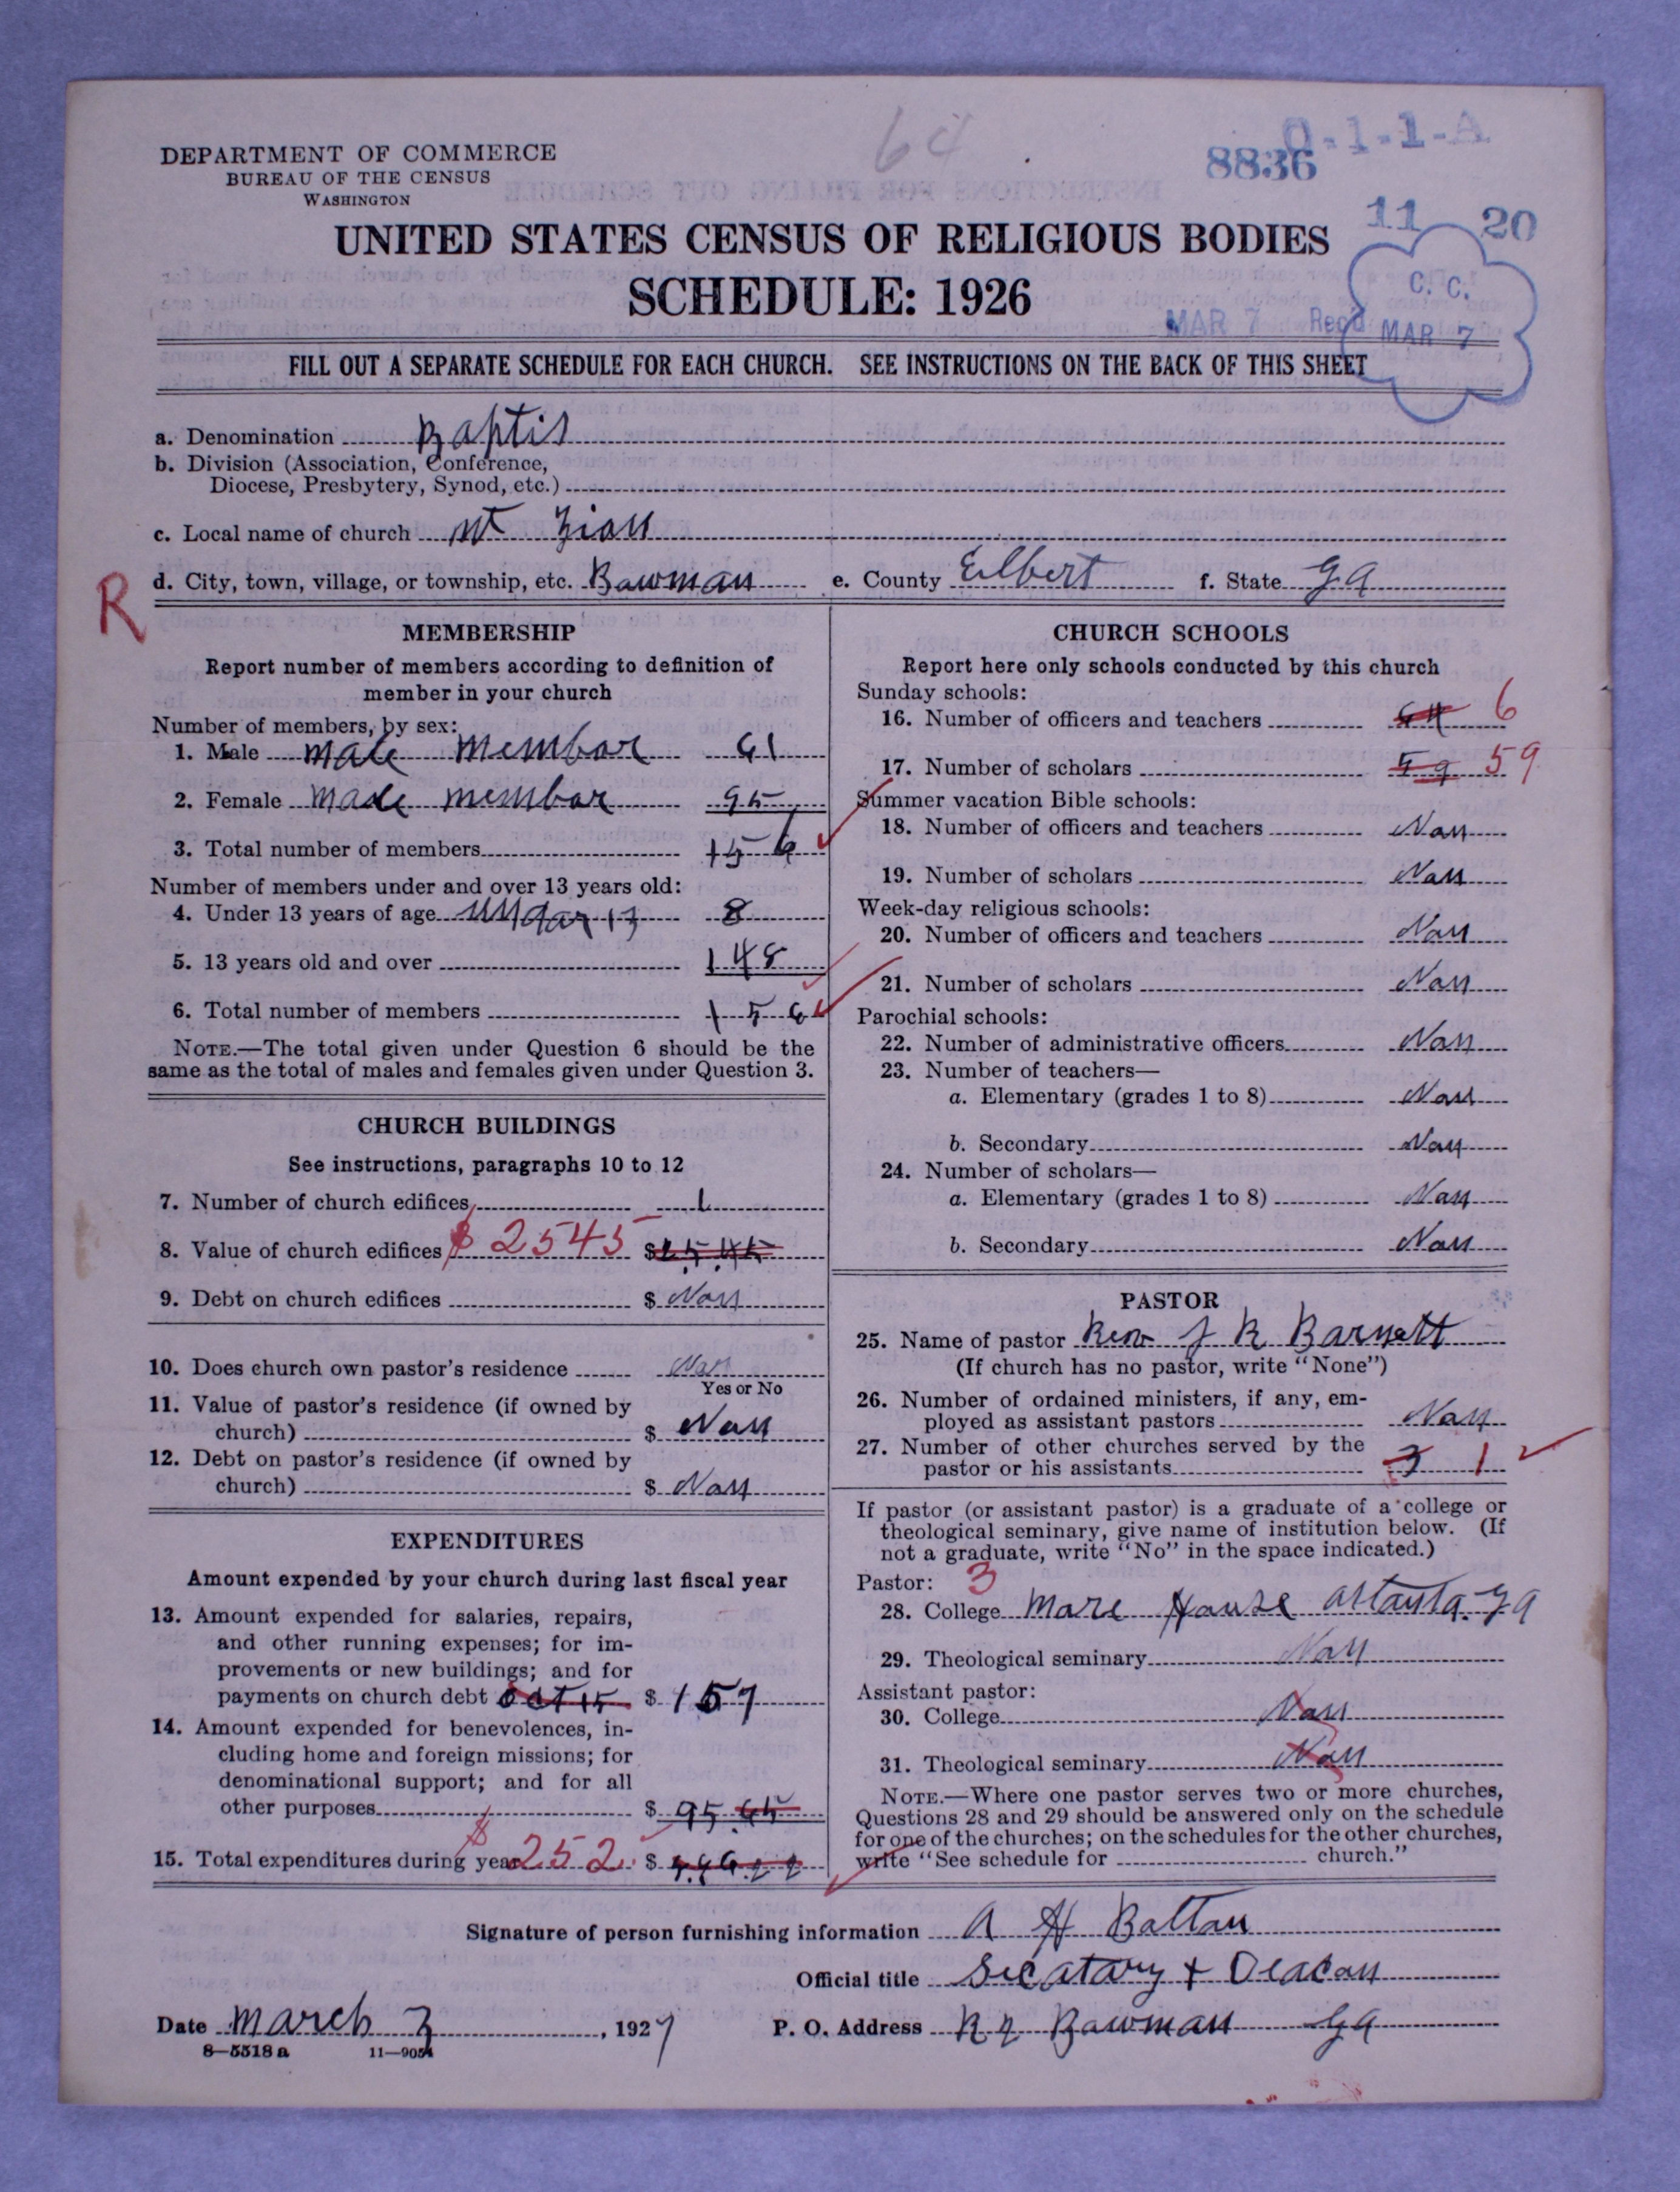 64
0-1-1-A
8836
DEPARTMENT OF COMMERCE
BUREAU OF THE CENSUS
WASHINGTON
11 20
UNITED STATES CENSUS OF RELIGIOUS BODIES
SCHEDULE: 1926
C. C.
MAR 7 Rec'd MAR 7
FILL OUT A SEPARATE SCHEDULE FOR EACH CHURCH. SEE INSTRUCTIONS ON THE BACK OF THIS SHEET
a. Denomination Baptis
b. Division (Association, Conference,
Diocese, Presbytery, Synod, etc.)
c. Local name of church Mt Zion
R
d. City, town, village, or township, etc. Bowman e. County Elbert f. State Ga
MEMBERSHIP
Report number of members according to definition of
member in your church
Number of members, by sex:
1. Male male membar 61
2. Female made membar 95
3. Total number of members 156
Number of members under and over 13 years old:
4. Under 13 years of age undar 13 8
5. 13 years old and over 148
6. Total number of members 156
NOTE.—The total given under Question 6 should be the
same as the total of males and females given under Question 3.
CHURCH BUILDINGS
See instructions, paragraphs 10 to 12
7. Number of church edifices 1
8. Value of church edifices $ 2545 $ 2545
9. Debt on church edifices $ Non
10. Does church own pastor's residence Non
Yes or No
11. Value of pastor's residence (if owned by
church) $ Non
12. Debt on pastor's residence (if owned by
church) $ Non
EXPENDITURES
Amount expended by your church during last fiscal year
13. Amount expended for salaries, repairs,
and other running expenses; for im-
provements or new buildings; and for
payments on church debt oct 15 $ 157
14. Amount expended for benevolences, in-
cluding home and foreign missions; for
denominational support; and for all
other purposes $ 95.65
15. Total expenditures during year $ 252 $
CHURCH SCHOOLS
Report here only schools conducted by this church
Sunday schools:
16. Number of officers and teachers 6
17. Number of scholars 59 59
Summer vacation Bible schools:
18. Number of officers and teachers Non
19. Number of scholars Non
Week-day religious schools:
20. Number of officers and teachers Non
21. Number of scholars Non
Parochial schools:
22. Number of administrative officers Non
23. Number of teachers—
a. Elementary (grades 1 to 8) Non
b. Secondary Non
24. Number of scholars—
a. Elementary (grades 1 to 8) Non
b. Secondary Non
PASTOR
25. Name of pastor Rev J R Barnett
(If church has no pastor, write "None")
26. Number of ordained ministers, if any, em-
ployed as assistant pastors Non
27. Number of other churches served by the
pastor or his assistants 3 1
If pastor (or assistant pastor) is a graduate of a college or
theological seminary, give name of institution below. (If
not a graduate, write "No" in the space indicated.)
Pastor: 3
28. College More House Atlanta Ga
29. Theological seminary Non
Assistant pastor:
30. College Non
31. Theological seminary Non
NOTE.—Where one pastor serves two or more churches,
Questions 28 and 29 should be answered only on the schedule
for one of the churches; on the schedules for the other churches,
write "See schedule for church."
Signature of person furnishing information A H Baltan
Official title Secatary + Deacon
Date March 3, 1927 P. O. Address R 2 Bowman Ga
8—5518 a 11—9054